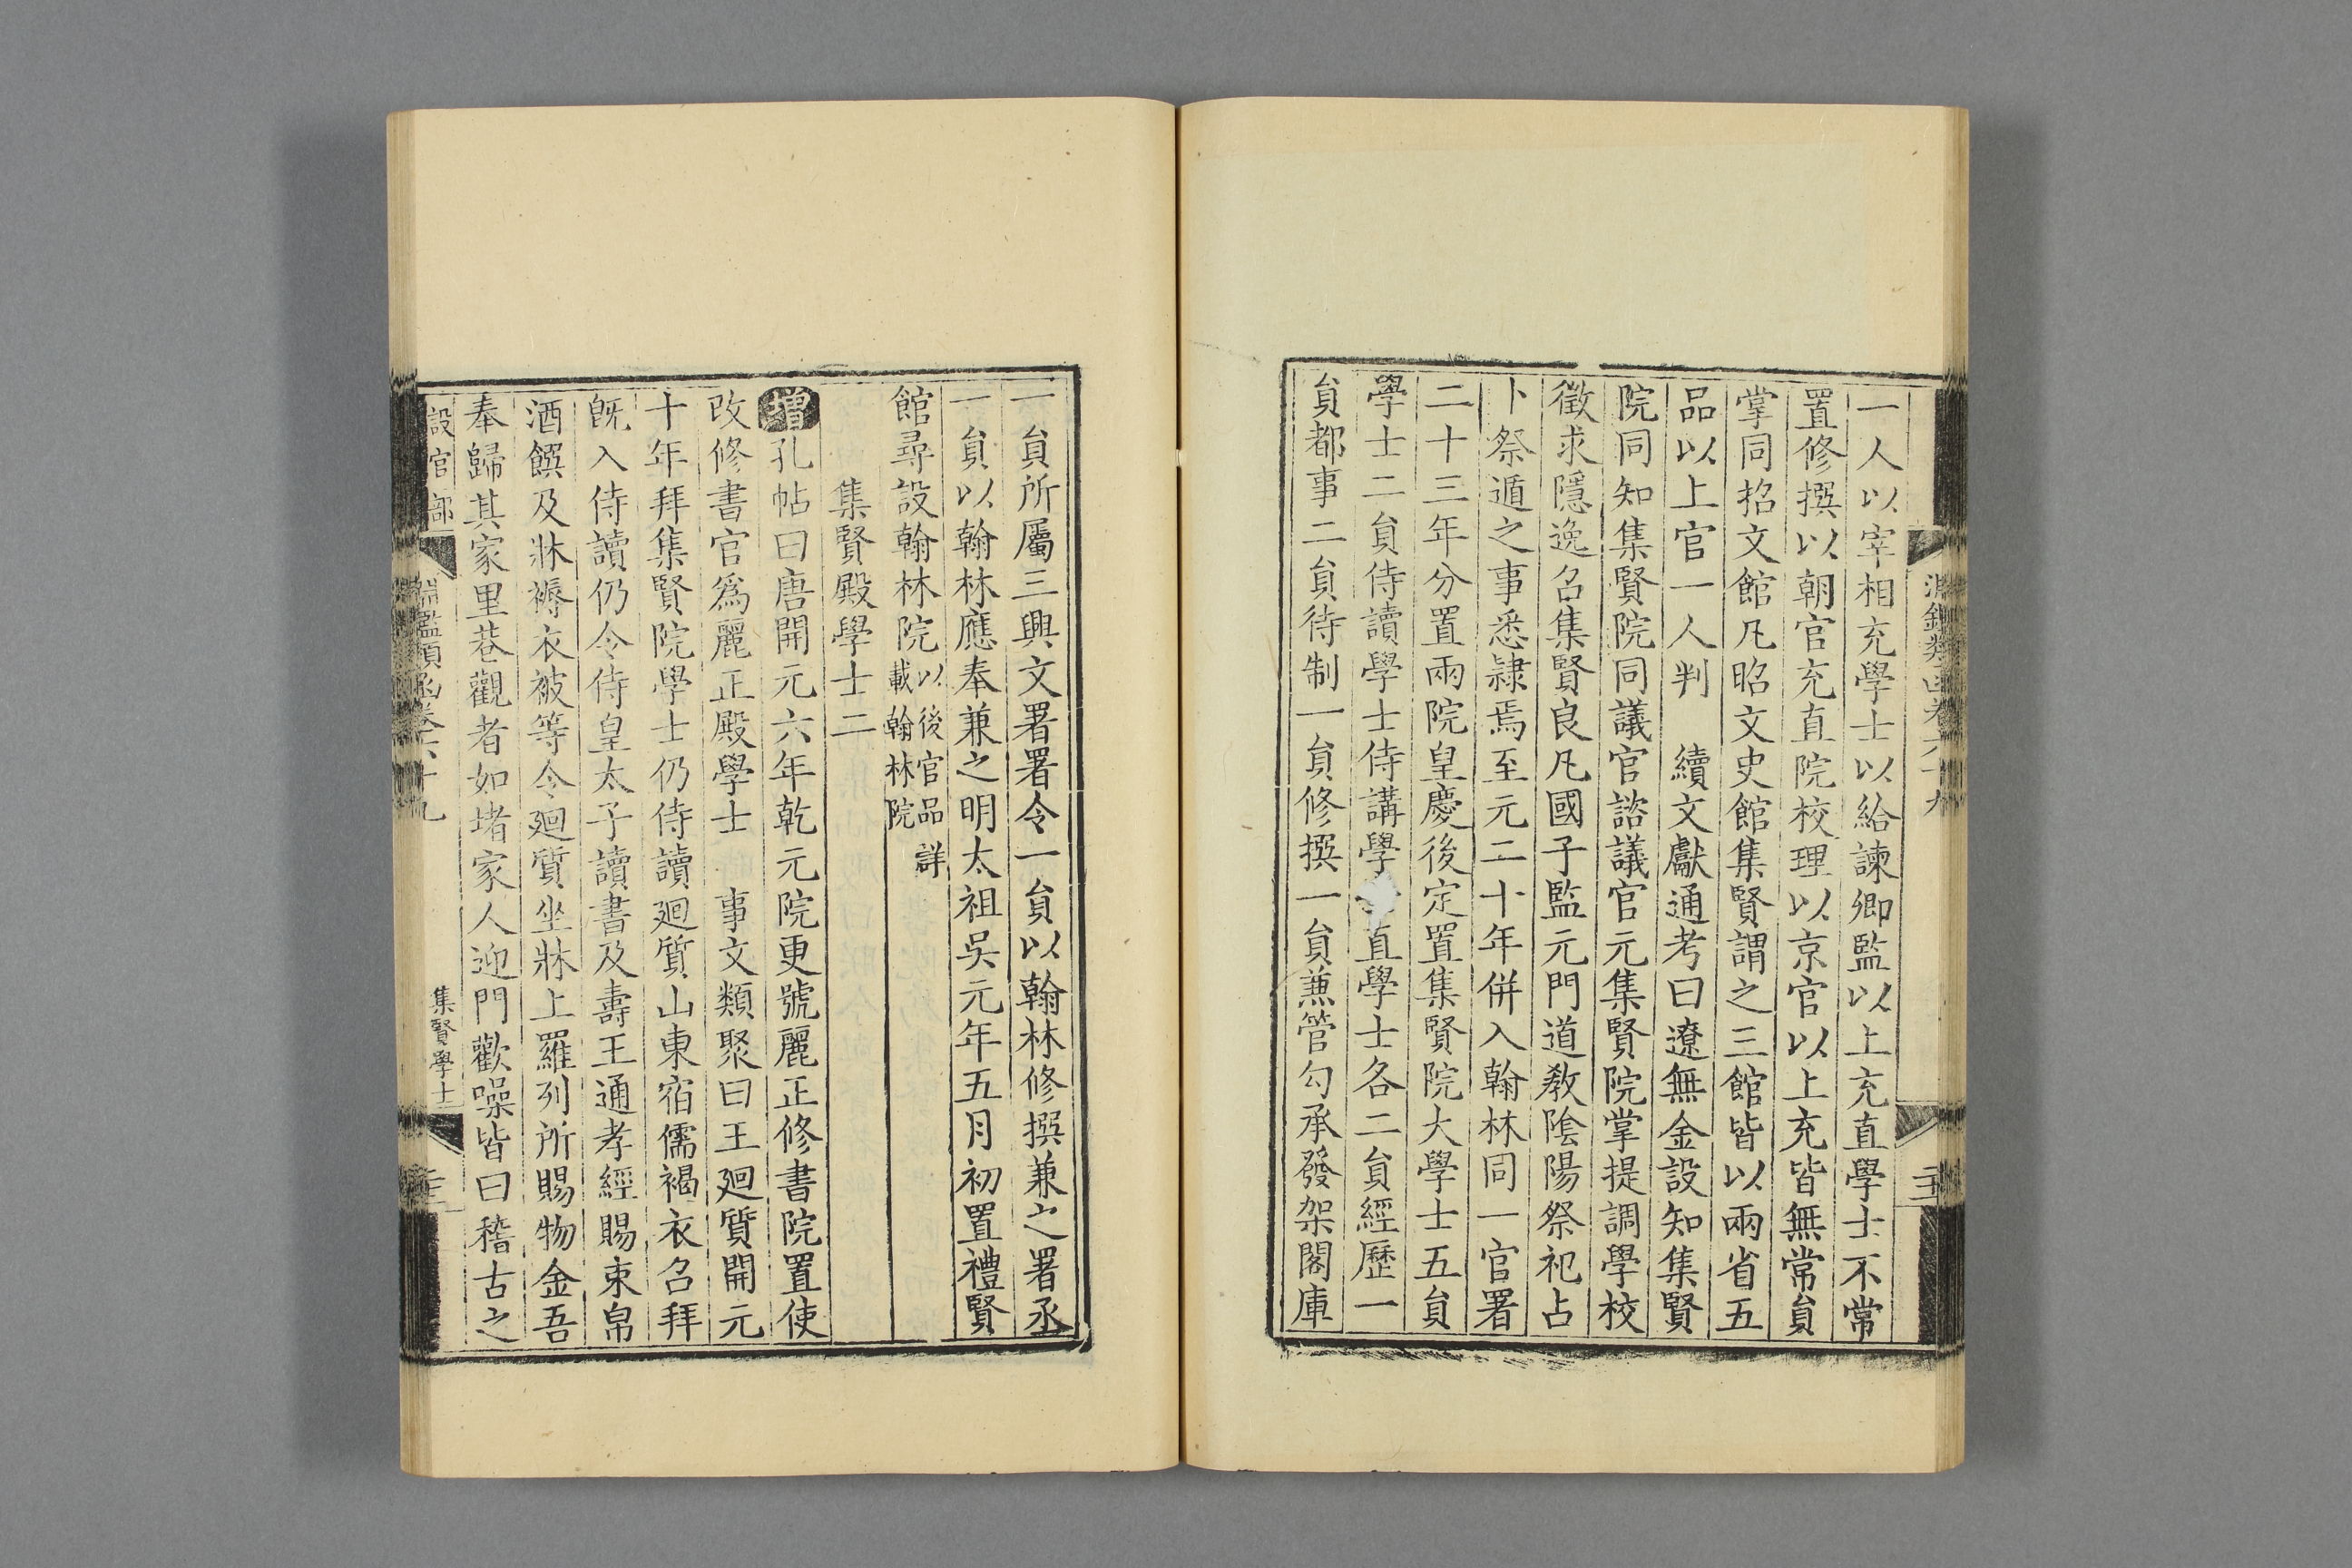 一人以宰相充學士以給諫卿監以上充直學士不常
置修撰以朝官充直院校理以京官以上充皆無常員
掌同招文館凡昭文史館集賢謂之三館皆以兩省五
品以上官一人判　續文獻通考曰遼無金設知集賢
院同知集賢院同議官諮議官元集賢院掌提調學校
徵求隱逸召集賢良凡國子監元門道教陰陽祭祀占
卜祭遁之事悉隸焉至元二十年併入翰林同一官署
二十三年分置兩院皇慶後定置集賢院大學士五員
學士二員侍讀學士侍講學直學士各二員經歷一
員都事二員待制一員修撰一員蕪管勾承發架閣庫
一員所屬三興文署署令一員以翰林修撰兼之署丞
一員以翰林應奉兼之明太祖吳元年五月初置禮賢
館尋設翰林院以後官品詳載翰林院
集賢殿學士二
增孔帖曰唐開元六年乾元院更號麗正修書院置使
改修書官爲麗正殿學士　事文類聚曰王廻質開元
十年拜集賢院學士仍侍讀廻質山東宿儒褐衣召拜
旣入侍讀仍令侍皇太子讀書及壽王通孝經賜束帛
酒饌及牀褥衣被等令廻質坐牀上羅列所賜物金吾
奉歸其家里巷觀者如堵家人迎門歡噪皆曰稽古之
設官部
淵鑑類函卷六十九
集賢學士